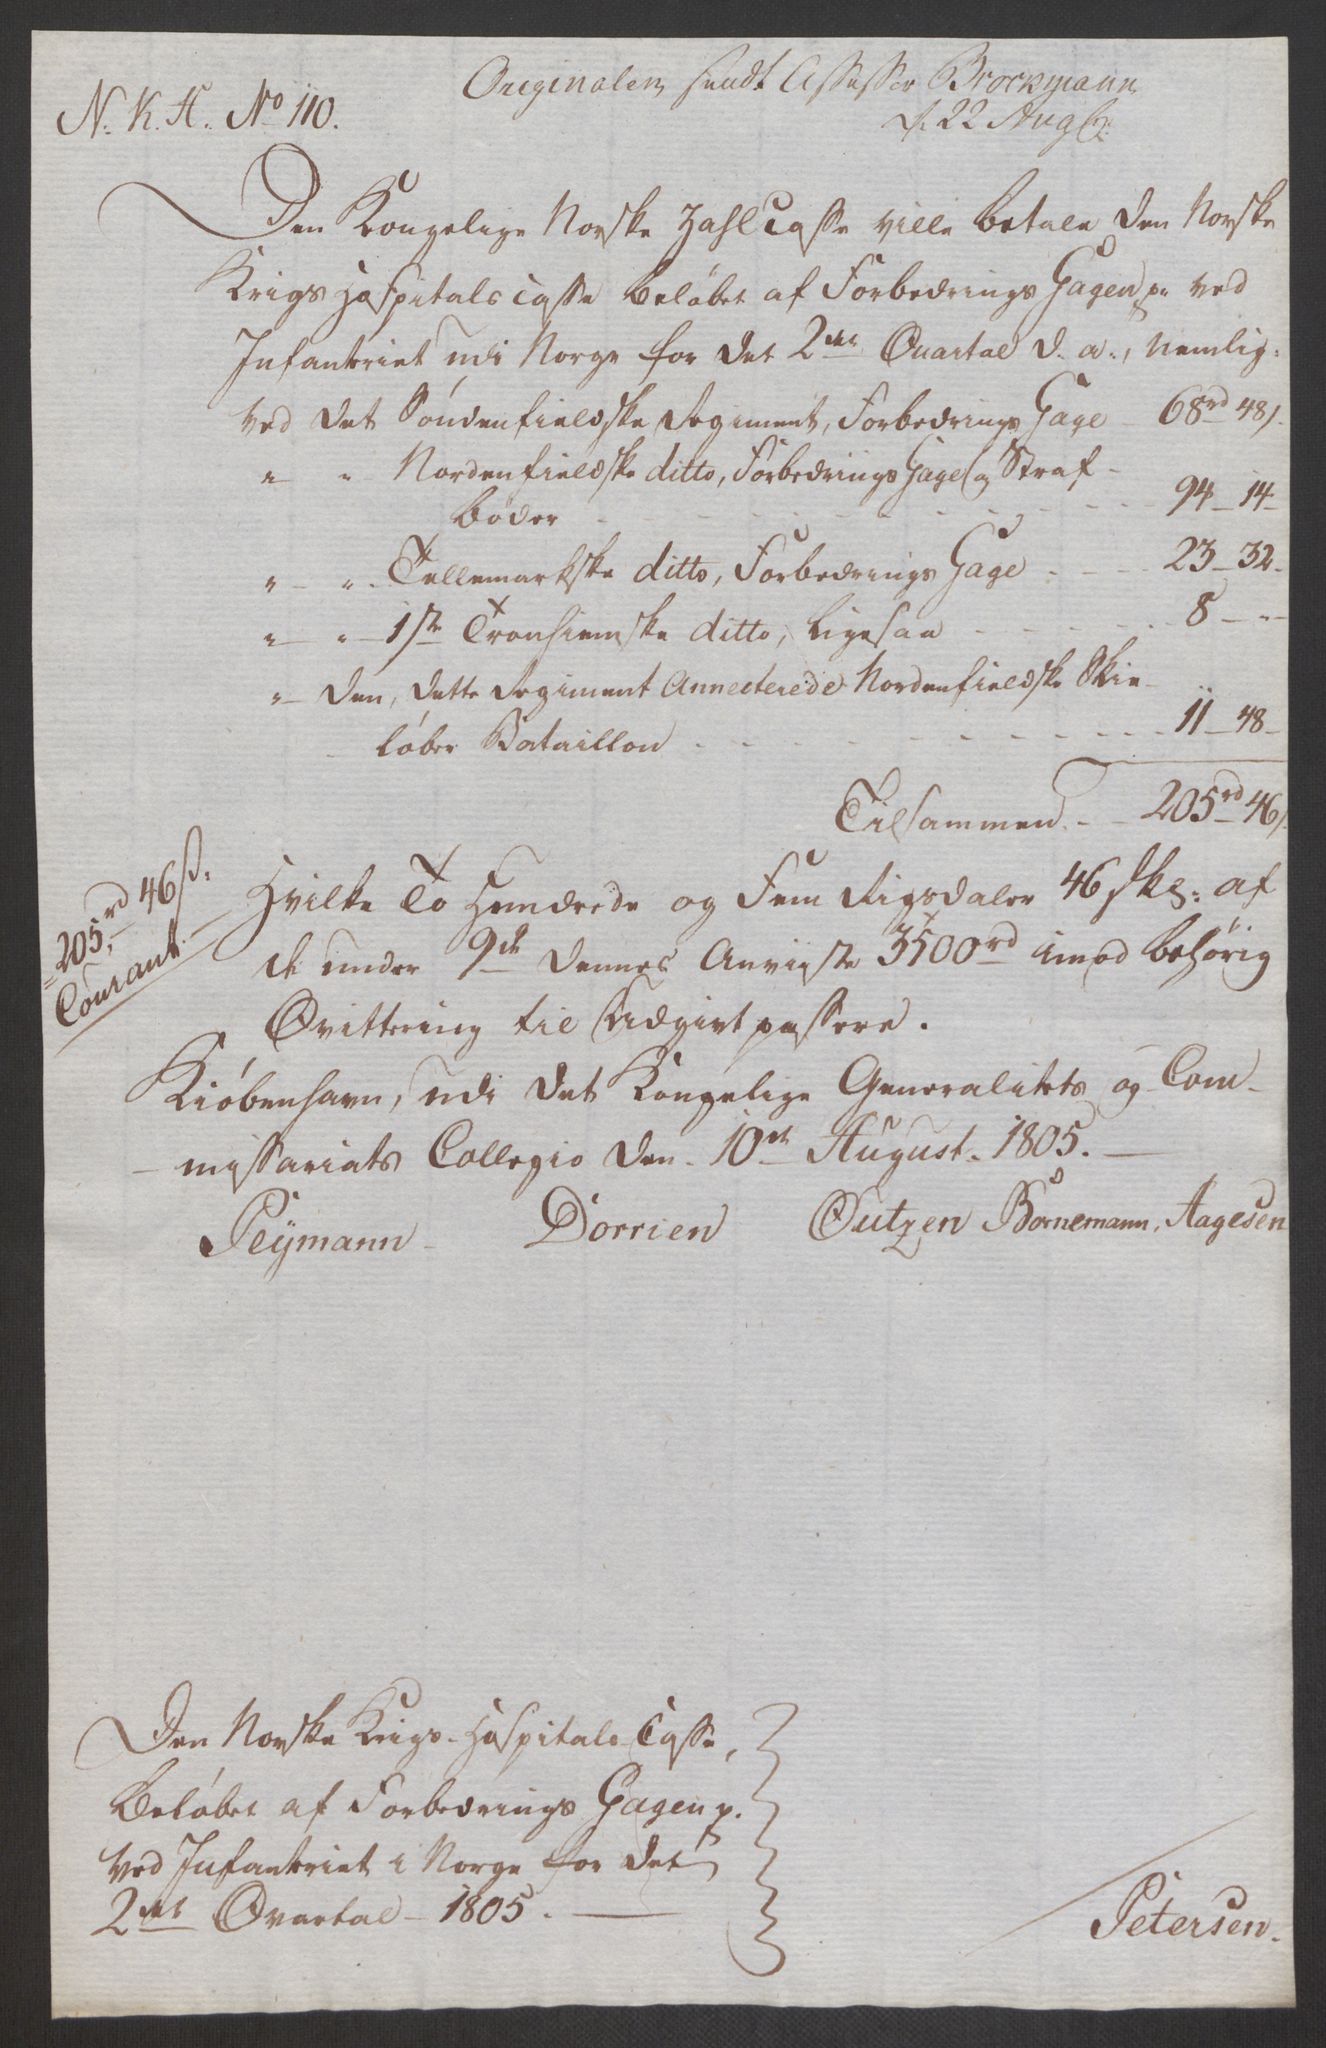 Originalen sendt Assessor Brockmann
d. 22 Aug
N. K. A. No 110.
Den Kongelige Norske Zahlcasse ville betale den Norske
Krigs Hospitals Casse Beløbet af Forbedrings Gagen p. ved
Infanteriet udi Norge for det 2det Quartal d. a., nemlig:
Ved det Søndenfieldske Regiment, Forbedrings Gage 68rd 48s.
" " Nordenfieldske ditto, Forbedrings Gage og Straf-
bøder 94 - 14 -
" - " - Tellemarkske ditto, Forbedrings Gage 23 - 32 -
" - " - 1ste Tronhiemske ditto, ligesaa 8 - "
" - Den, dette Regiment Annecterede Nordenfieldske Skie-
løber Bataillon 11 - 48 -
Tilsammen - 205rd 46s.
205rd 46s.
Courant.
Hvilke To Hundrede og Fem Rigsdaler 46 skl: af
de under 9de dennes Anviiste 3500rd imod behörig
Qvittering til Udgivt passere.
Kiöbenhavn, udi det Kongelige Generalitets og Com-
missariats Collegio den 10de August 1805.
Peymann Dorrien Outzen Bornemann. Aagesen
Den Norske Krigs-Hospitals Casse,
Beløbet af Forbedrings Gagen p.
ved Infanteriet i Norge for det
2det Qvartal 1805.
Petersen.